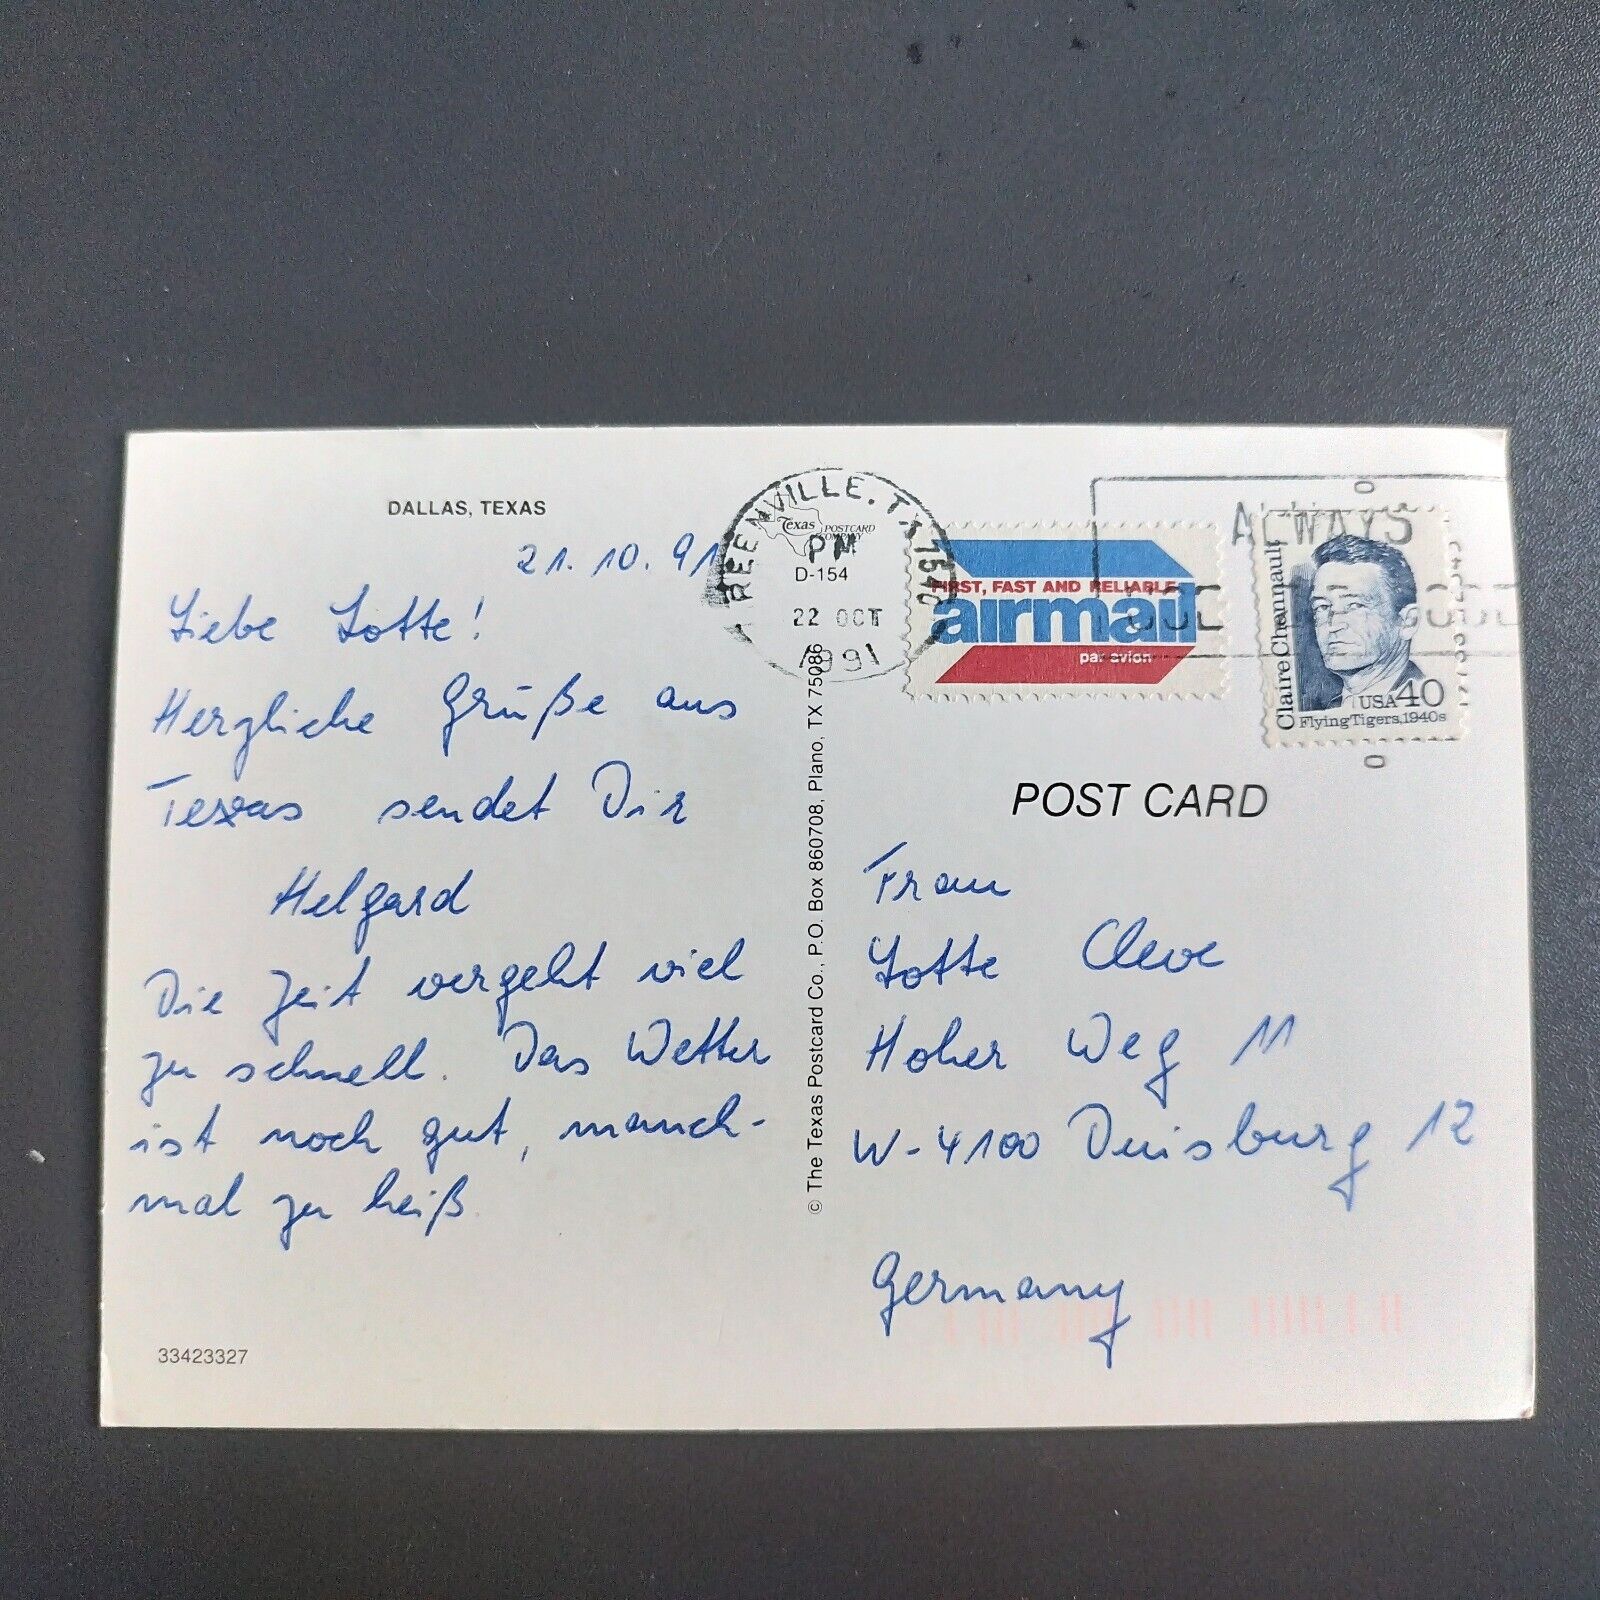 DALLAS, TEXAS
21. 10. 91
Liebe Lotte!
Herzliche Grüße aus
Texas sendet Dir
Helgard
Die Zeit vergeht viel
zu schnell. Das Wetter
ist noch gut, manch-
mal zu heiß.
33423327
© The Texas Postcard Co., P.O. Box 860708, Plano, TX 75086
Texas POSTCARD COMPANY
D-154
GREENVILLE, TX 7540
PM
22 OCT
1991
FIRST, FAST AND RELIABLE
airmail
par avion
ALWAYS
USE
Claire Chennault
USA 40
Flying Tigers, 1940s
POST CARD
Frau
Lotte Cleve
Hoher Weg 11
W-4100 Duisburg 12
Germany